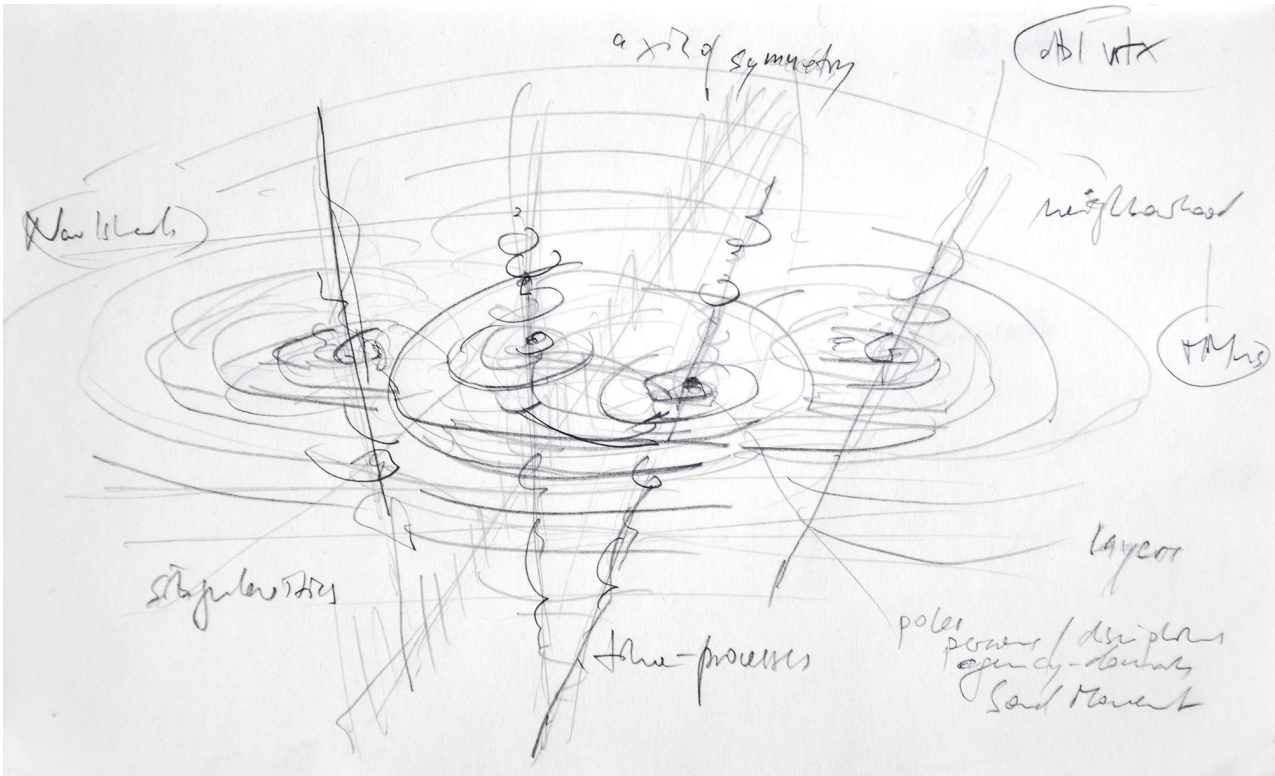 axis of symmetry
dbl vtx
neighbourhood
layers
singularities
time-processes
poles
persons / disciplines
agency-domains
Sound Movement